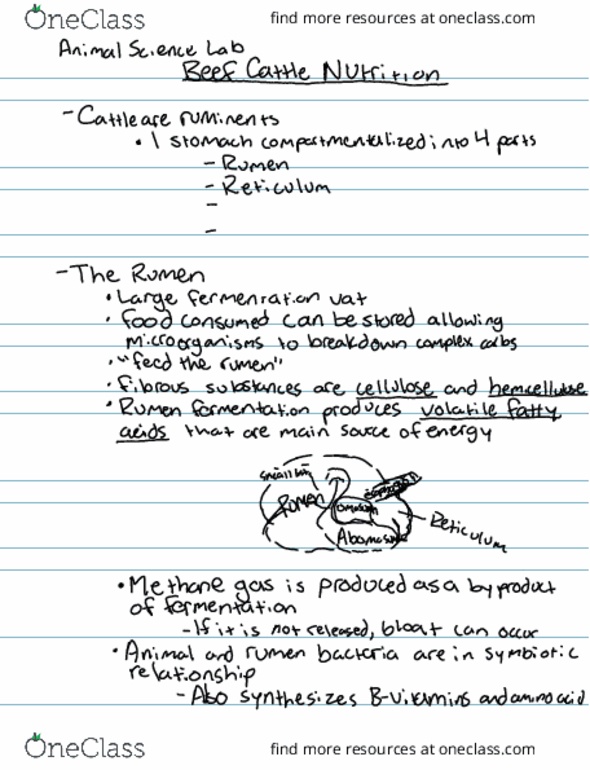 OneClass find more resources at oneclass.com
Animal Science Lab
Beef Cattle Nutrition
- Cattle are ruminents
• 1 stomach compartmentalized into 4 parts
- Rumen
- Reticulum
-
-
- The Rumen
• Large fermenration vat
• Food consumed can be stored allowing
microorganisms to breakdown complex carbs
• "feed the rumen"
• Fibrous substances are cellulose and hemcellulose
• Rumen fermentation produces volatile fatty
acids that are main source of energy
small int
Rumen
omasum
Reticulum
Abomasum
• Methane gas is produced as a byproduct
of fermentation
- If it is not released, bloat can occur
• Animal and rumen bacteria are in symbiotic
relationship
- Also synthesizes B-vitamins and amino acid
OneClass find more resources at oneclass.com